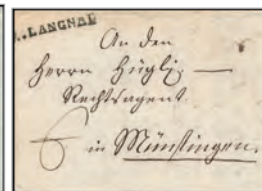 LANGNAU
An den
Herrn Hügli, —
Rechtsagent
6 in Münsingen.